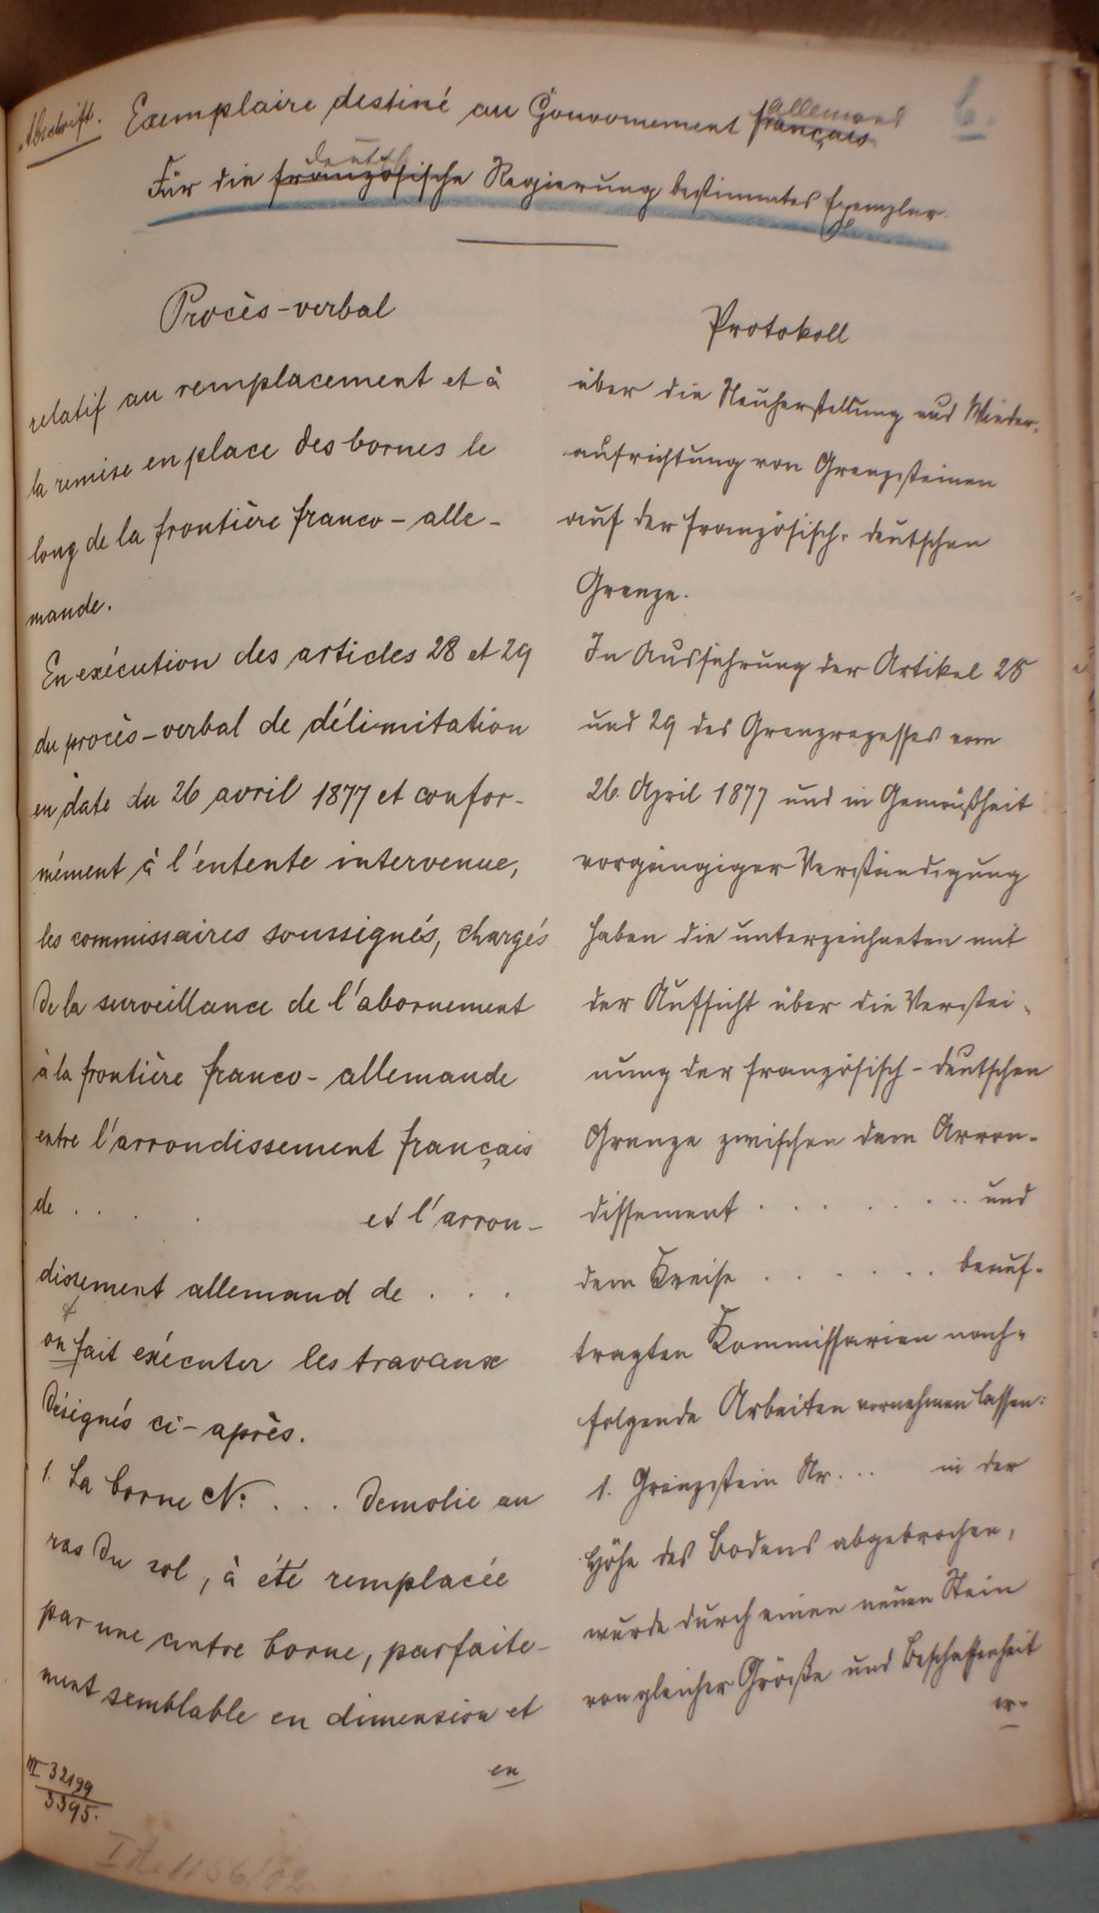 Abschrift.
Exemplaire destiné au Gouvernement français
allemand
6.
deutsch
Für die französische Regierung bestimmtes Exemplar.
Procès-verbal
relatif au remplacement et à
la remise en place des bornes le
long de la frontière franco-alle-
mande.
En exécution des articles 28 et 29
du procès-verbal de délimitation
en date du 26 avril 1877 et confor-
mément à l'entente intervenue,
les commissaires soussignés, chargés
de la surveillance de l'abornement
à la frontière franco-allemande
entre l'arrondissement français
de . . . et l'arron-
dissement allemand de . . .
on fait exécuter les travaux
désignés ci-après.
1. La borne No. . . . demolie au
ras du sol, à été remplacée
par une autre borne, parfaite-
ment semblable en dimension et
en
Protokoll
über die Neuherstellung und Wieder-
aufrichtung von Grenzsteinen
auf der französisch-deutschen
Grenze.
In Ausführung der Artikel 28
und 29 des Grenzrezesses vom
26. April 1877 und in Gemäßheit
vorgängiger Verständigung
haben die unterzeichneten mit
der Aufsicht über die Verstei-
nung der französisch-deutschen
Grenze zwischen dem Arron-
dissement . . . . . . . . und
dem Kreise . . . . . . beauf-
tragten Kommissarien nach-
folgende Arbeiten vornehmen lassen:
1. Grenzstein Nr. . . . in der
Höhe des Bodens abgebrochen,
wurde durch einen neuen Stein
von gleicher Größe und Beschaffenheit
er-
III 32199
3395.
I A. 1156/02